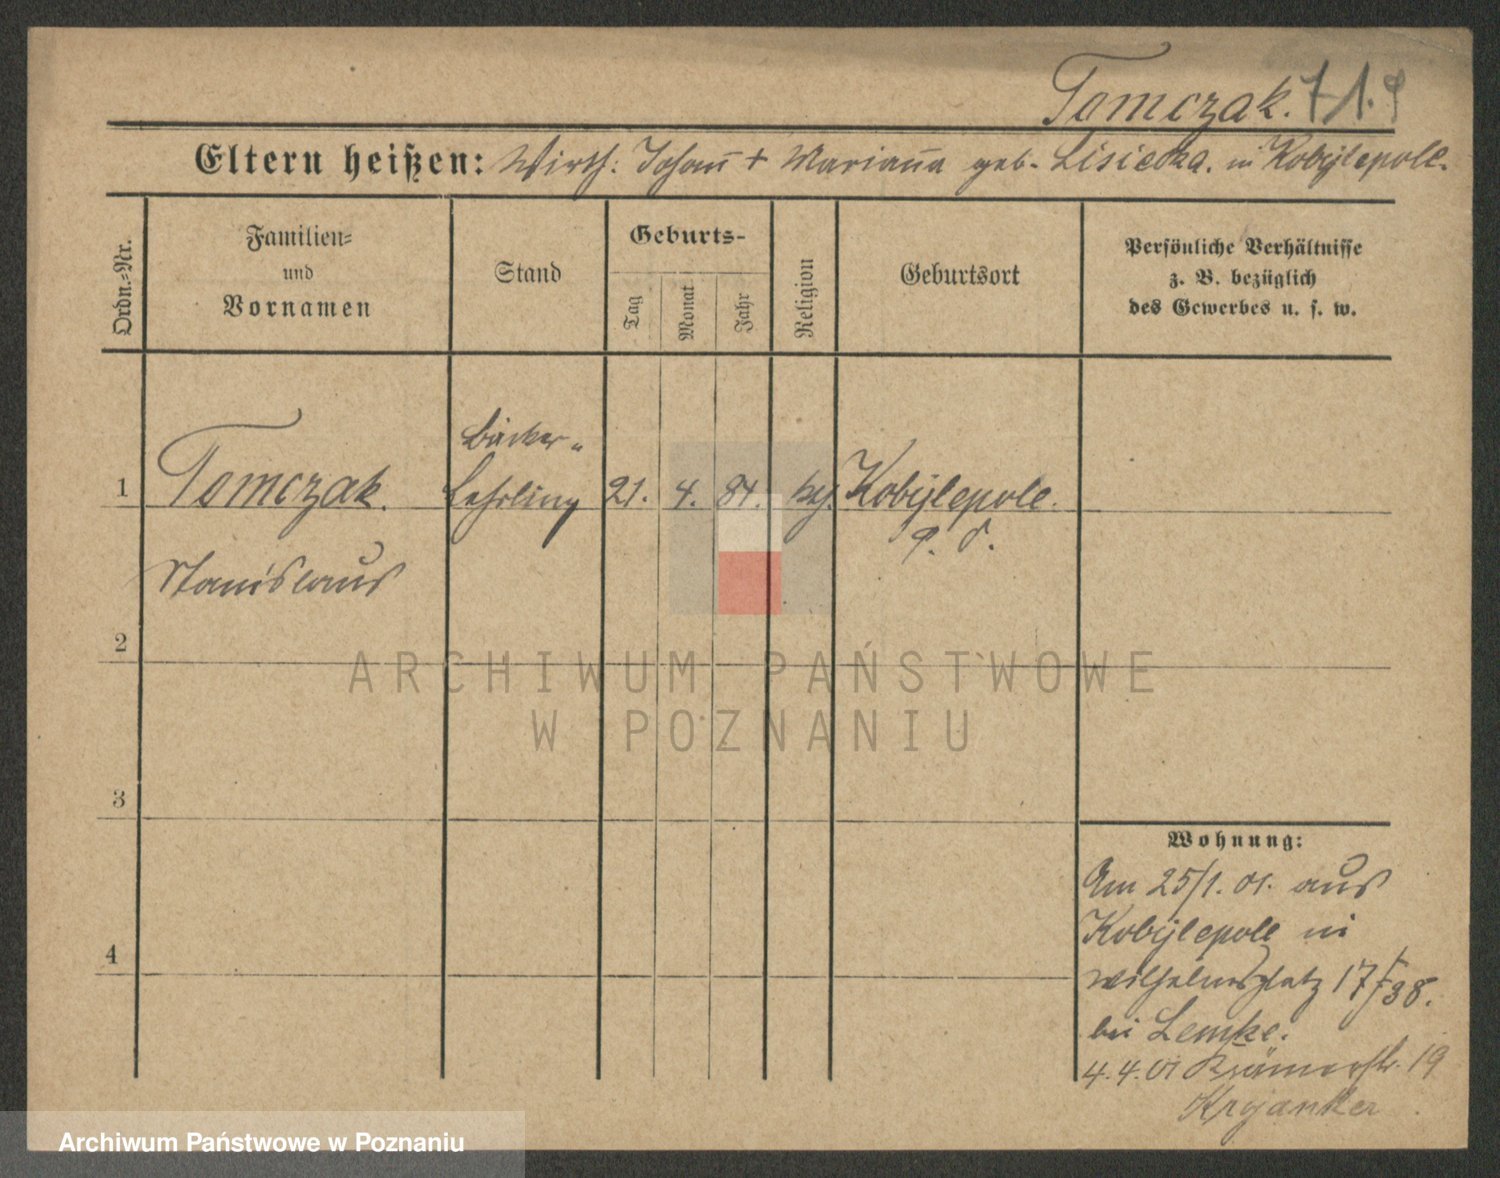 Tomczak. 71.9
Eltern heißen: Wirth: Johann + Marianna geb. Lisiecka. in Kobylepole.
Ordn.-Nr.
Familien-
und
Vornamen
Stand
Geburts-
Tag
Monat
Jahr
Religion
Geburtsort
Persönliche Verhältnisse
z. B. bezüglich
des Gewerbes u. s. w.
Bäcker-
1 Tomczak. Lehrling 21. 4. 84. kth. Kobylepole.
P. O.
Stanislaus
2
3
4
Wohnung:
Am 25/1. 01. aus
Kobylepole in
Wilhelmsplatz 17/
bei Lemke.
4.4.01 Krämerstr. 19
Krojanker
ARCHIWUM PAŃSTWOWE
W POZNANIU
Archiwum Państwowe w Poznaniu